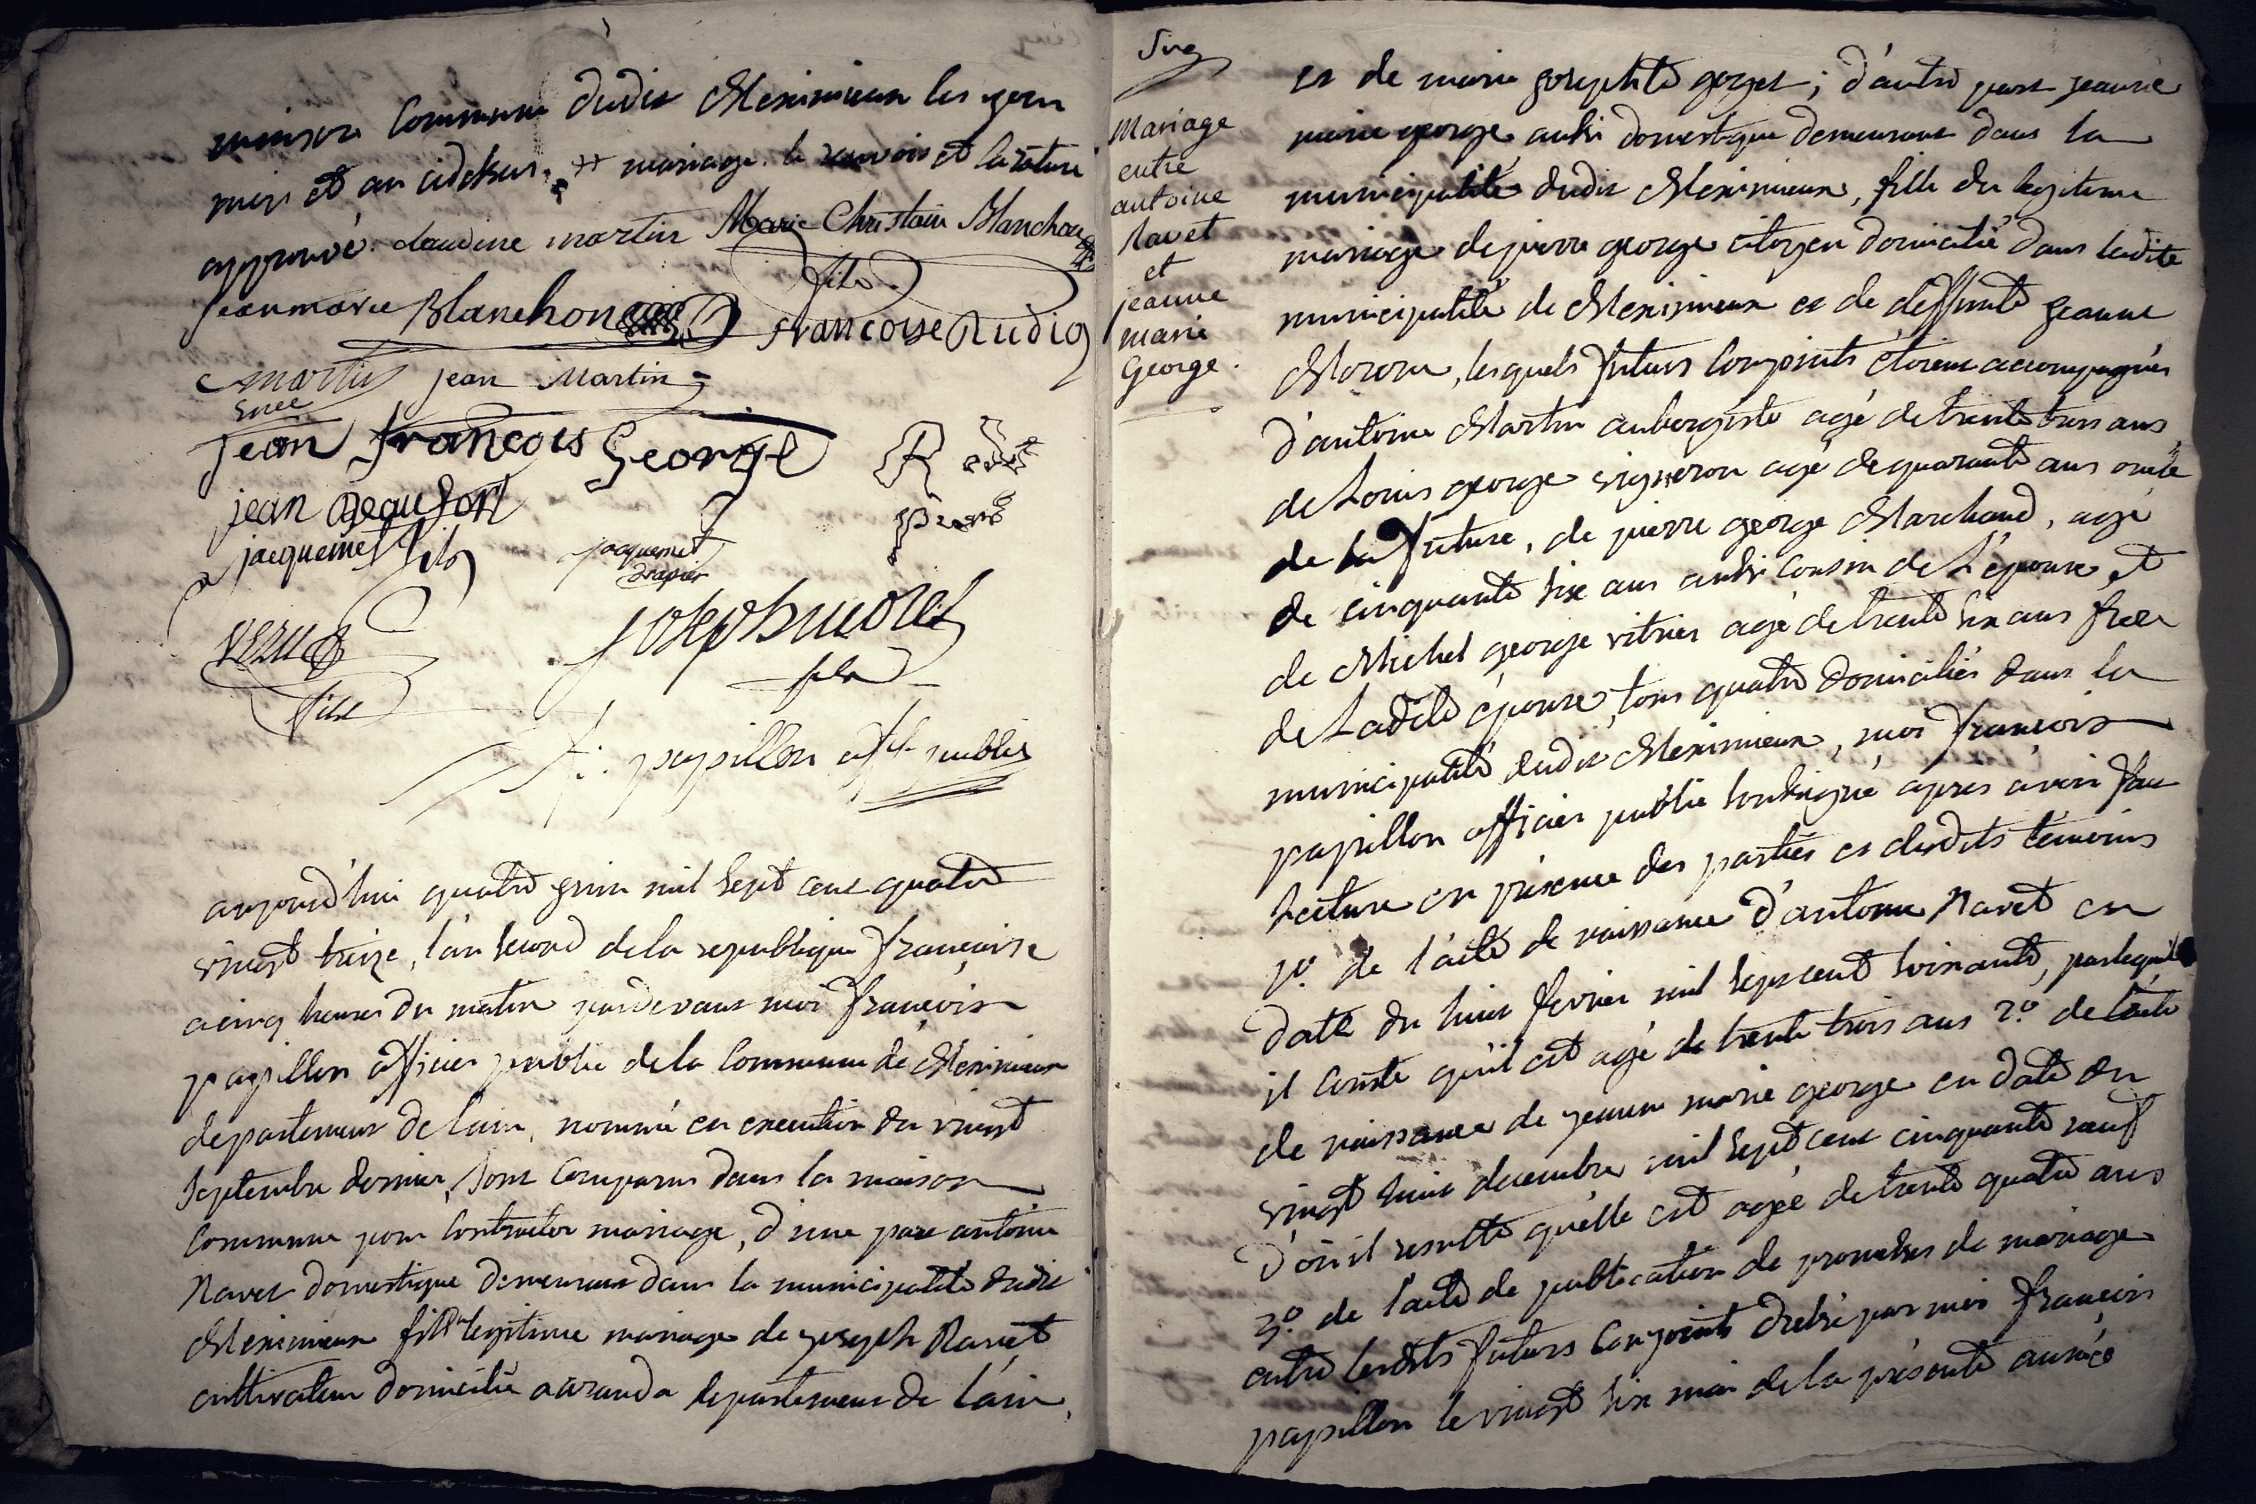 maison Commune dudit Meximieux les jour
mois et an cidessus. ++ mariage. le renvois et la rature
approuvé. claudine martin Marie Christain Blanchon
fils
jeanmarie Blanchon francoise Rudig
martin jean Martin
jean francois George
jean Beaufort
jacquemet fils jacquemet
drapier
josephmoret
fils
f: papillon off. public
aujourd'hui quatre juin mil sept cent quatre
vingt treize, l'an second de la republique françoise
a cinq heures du matin pardevant moi françois
papillon officier public de la Commune de Meximieux
departement de l'ain, nommé en execution du vingt
septembre dernier, sont Comparus dans la maison
Commune pour Contracter mariage, d'une part antoine
Navet domestique demeurant dans la municipalité dudit
Meximieux fils legitime mariage de joseph Navet
cultivateur domicilié a aranda departement de l'ain,
Mariage
entre
antoine
Navet
et
jeanne
marie
George.
et de marie josephte goyet; d'autre part jeanne
marie george aussi domestique demeurant dans la
municipalité dudit Meximieux, fille du legitime
mariage de pierre george citoyen domicilié dans ladite
municipalité de Meximieux et de deffunte jeanne
Moron, lesquels futurs Conjoints étoient accompagnés
d'antoine Martin aubergiste agé de trente trois ans
de Louis george vigneron agé de quarante ans oncle
de la future, de pierre george Marchand, agé
de cinquante six ans aussi Cousin de L'épouse et
de Michel george vitrier agé de trente six ans frere
de Ladite épouse, tous quatre domiciliés dans la
municipalité dudit Meximieux, moi françois
papillon officier public soussigné apres avoir fait
Lecture en présence des parties et desdits témoins
1º. de l'acte de naissance d'antoine Navet en
date du huit fevrier mil sept cent soixante, par lequel
il Conste qu'il est agé de trente trois ans 2º. de l'acte
de naissance de jeanne marie george en date du
vingt huit decembre mil sept cent cinquante neuf
d'où il resulte qu'elle est agée de trente quatre ans
3º. de l'acte de publication de promesses de mariage
entre lesdits futurs Conjoints dressé par moi françois
papillon le vingt six mai de la présente année